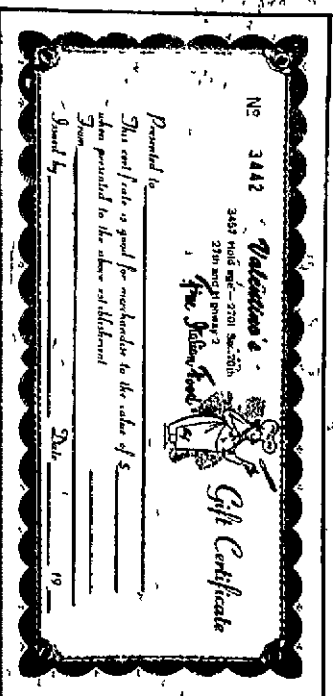 Nº 3442
Valentino's
3457 Holdrege — 2701 So. 70th
27th and Highway 2
Fine Italian Food
Gift Certificate
Presented to
This certificate is good for merchandise to the value of $
when presented to the above establishment
From
Issued by Date 19